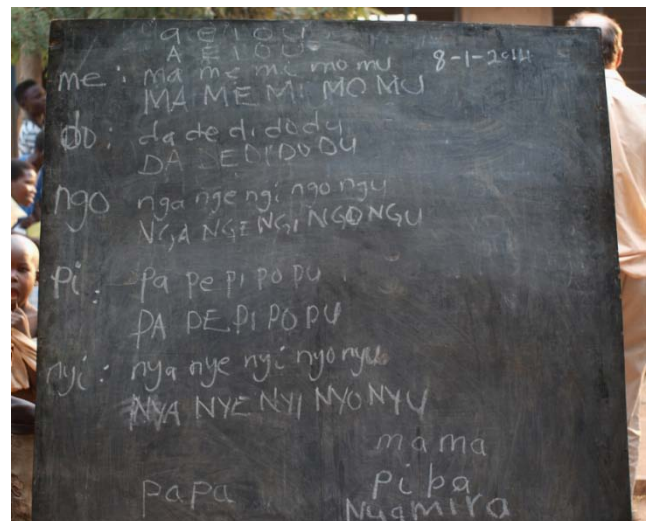 a e i o u
A E I O U
8-1-2014
me : ma me mi mo mu
MA ME MI MO MU
do : da de di do du
DA DE DI DO DU
ngo nga nge ngi ngo ngu
NGA NGE NGI NGO NGU
pi : pa pe pi po pu
PA PE PI PO PU
nyi : nya nye nyi nyo nyu
NYA NYE NYI NYO NYU
mama
papa pipa
Nyamira